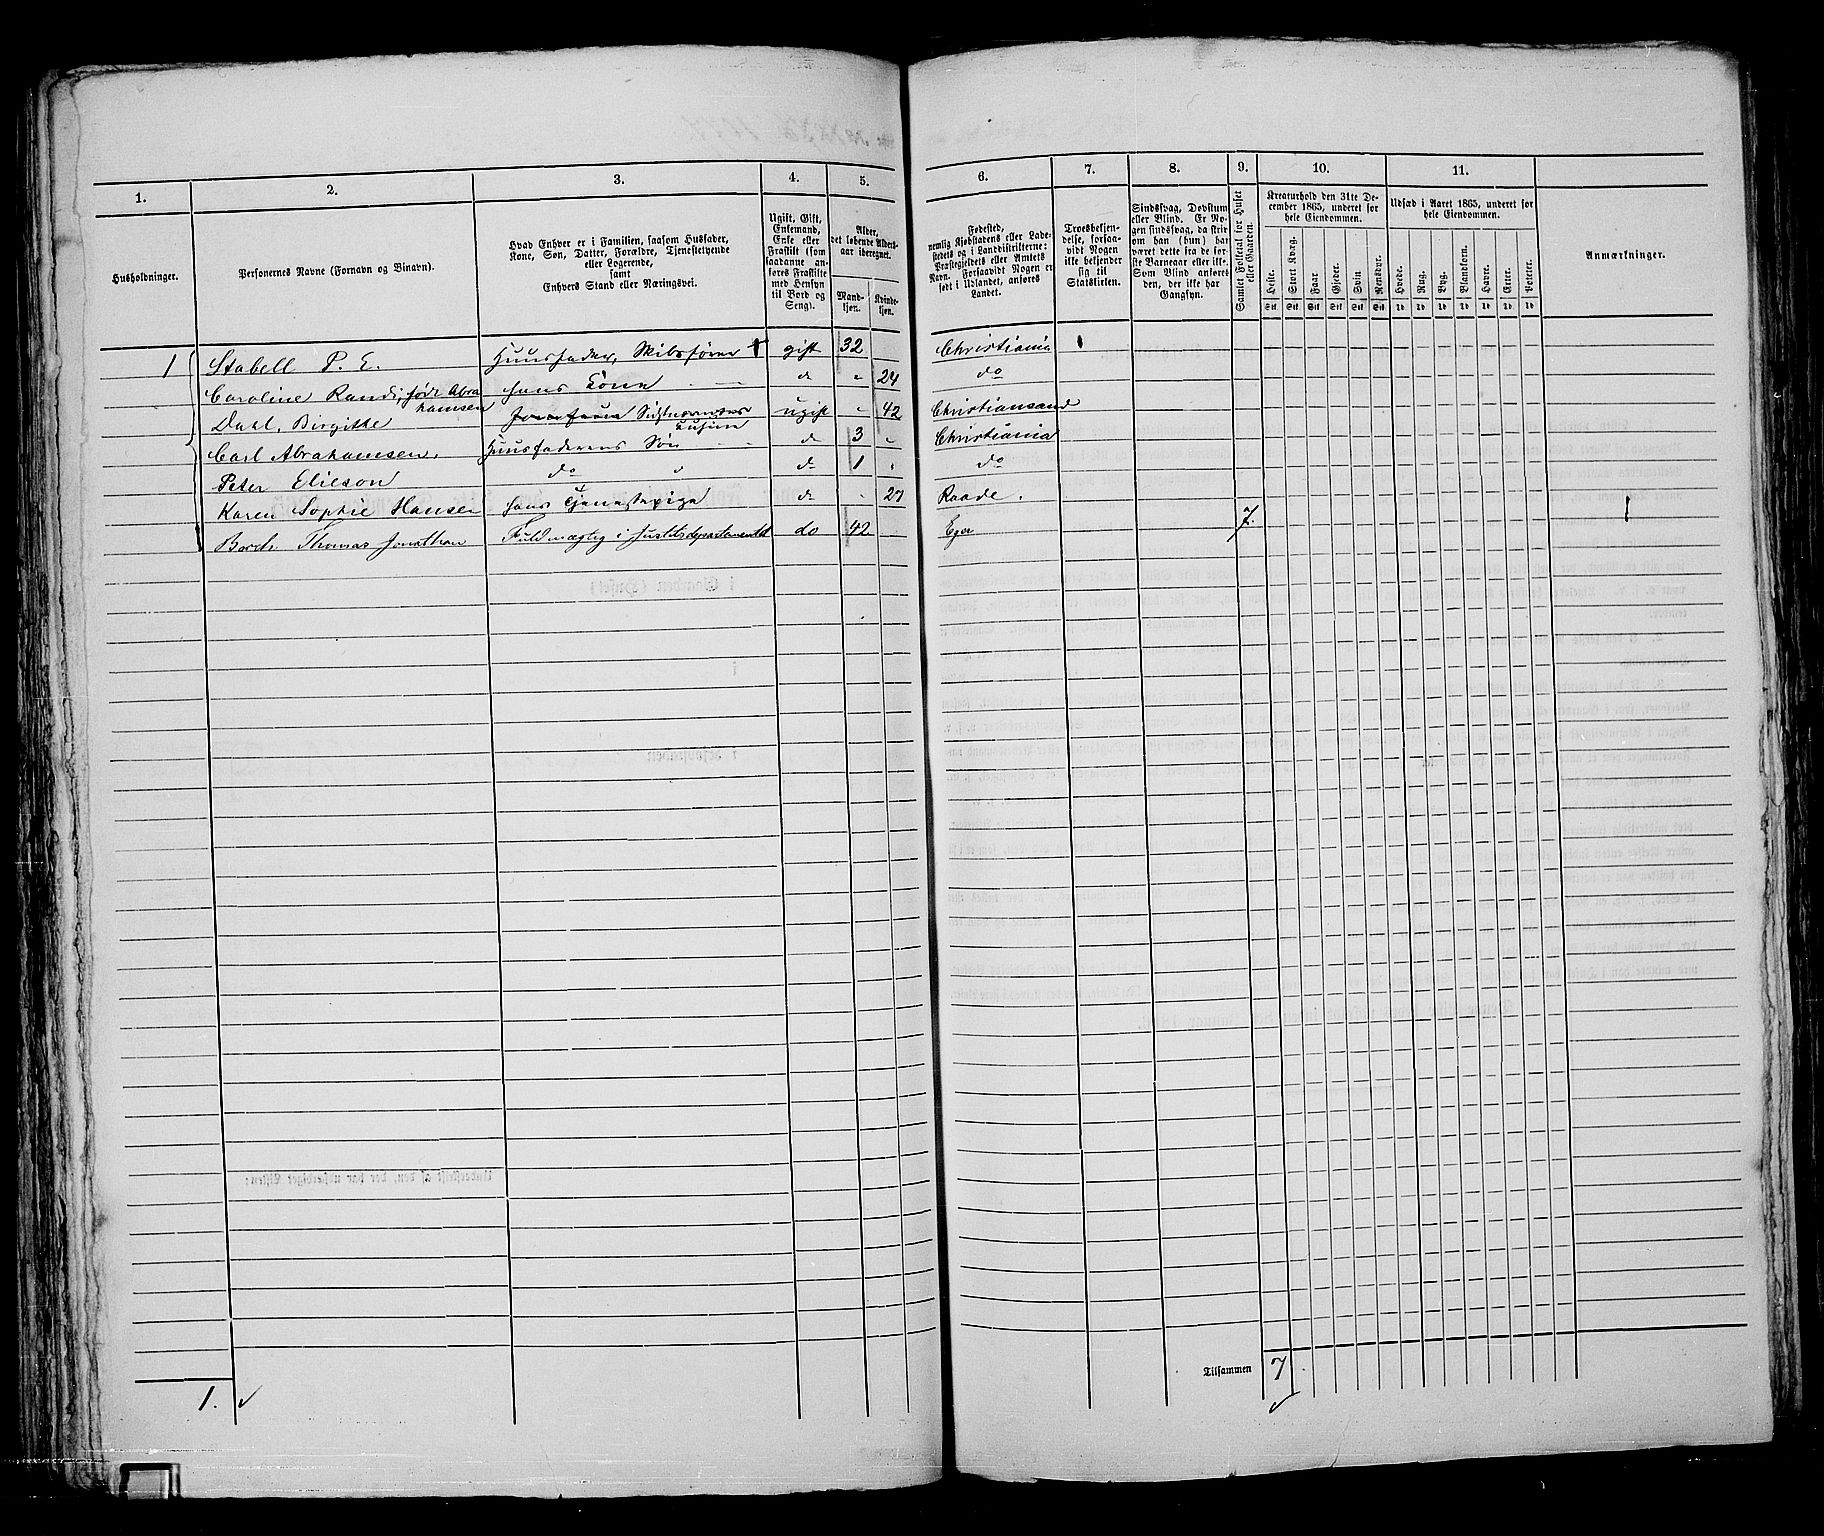 1. 2. 3. 4. 5. 6. 7. 8. 9. 10. 11.
Husholdninger.
Personernes Navne (Fornavn og Binavn).
Hvad Enhver er i Familien, saasom Husfader,
Kone, Søn, Datter, Forældre, Tjenestetyende
eller Logerende,
samt
Enhvers Stand eller Næringsvei.
Ugift, Gift,
Enkemand,
Enke eller
Fraskilt (som
saadanne an-
føres Fraskilte
med Hensyn
til Bord og
Seng).
Alder,
det løbende Alders-
aar iberegnet.
Mand-
kjøn.
Kvinde-
kjøn.
Fødested,
nemlig Kjøbstadens eller Lade-
stedets og i Landdistrikterne:
Præstegjeldets eller Amtets
Navn. Forsaavidt Nogen er
født i Udlandet, anføres
Landet.
Troesbekjen-
delse, forsaa-
vidt Nogen
ikke bekjender
sig til
Statskirken.
Sindssvag, Døvstum
eller Blind. Er No-
gen sindssvag, da skriv
om han (hun) har
været dette fra de før-
ste Barneaar eller ikke.
Som Blind anføres
den, der ikke har
Gangsyn.
Samlet Folketal for Huset
eller Gaarden.
Kreaturhold den 31te De-
cember 1865, underet for
hele Eiendommen.
Heste.
Stort Kvæg.
Faar
Gjeder.
Svin
Rensdyr.
Udsæd i Aaret 1865, underet for
hele Eiendommen.
Hvede.
Rug.
Byg.
Blandkorn.
Havre.
Erter.
Poteter.
Anmærkninger.
1 Stabell P. E. Huusfader, Skibsfører gift 32 Christiania
Caroline Randi, født Abra- hans Kone do " 24 do
hamsen
Dahl, Birgitte ugift " 42 Christiansand
Cusine
Carl Abrahamsen, Huusfaderens Søn do 3 " Christiania
Peter Elieson do do 1 " do
Karen Sophie Hansen hans Tjenestepige do " 27 Raade.
Borch Thomas Jonathan Fuldmægtig i Justitsdepartementet do 42 Eger 7. 1
Tilsammen 7
1. ✓ ✓